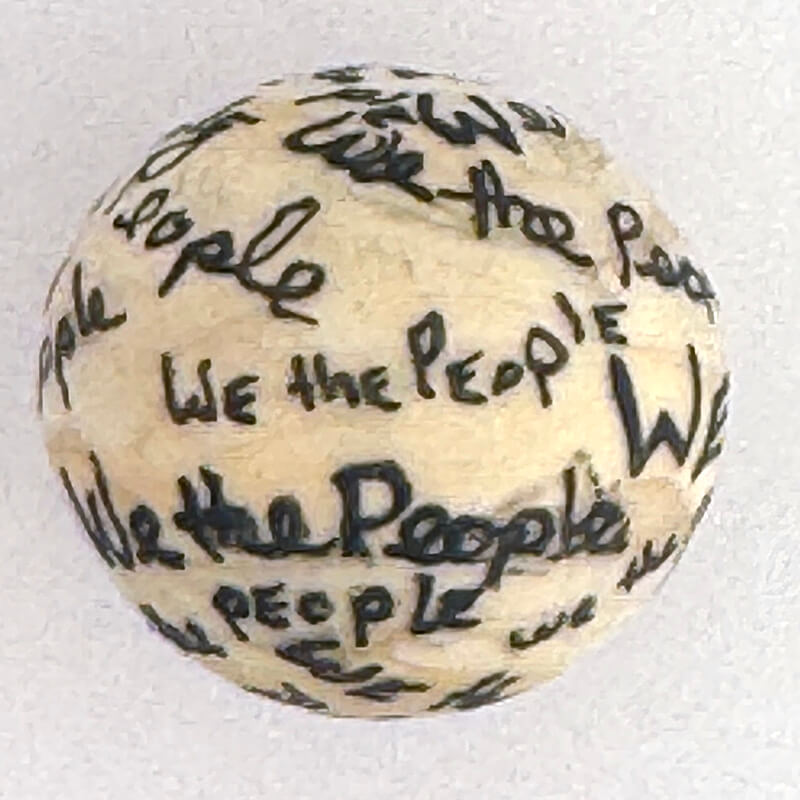 We
We the Peo
eople
ople
WE the PEOPlE
WE
We the People
PEOPLE
we
the